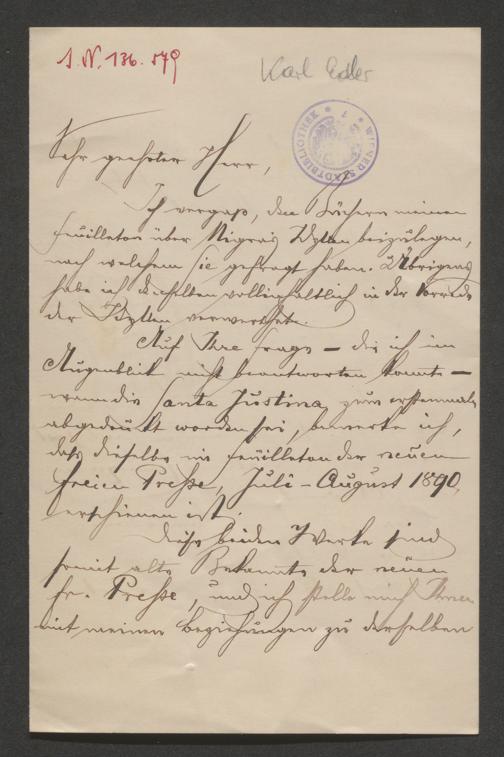 I. N. 136.579
Karl Erdler
WIENER STADTBIBLIOTHEK
Sehr geehrter Herr,
Ich vergaß, den Büchern meinen
Feuilleton über Idyllen beizulegen,
nach welchem Sie gefragt haben. Übrigens
habe ich denselben vollinhaltlich in der Vorrede
der Idyllen verwerthet.
Auf Ihre Frage – die ich im
Augenblick nicht beantworten konnte –
wann die Santa Justina zum erstenmale
abgedruckt worden sei, bemerke ich,
daß dieselbe im Feuilleton der neuen
freien Presse, Juli – August 1890,
erschienen ist.
Diese beiden Werke sind
somit alte Bekannte der neuen
fr. Presse, und ich stelle mich Ihnen
mit meinen Beziehungen zu derselben